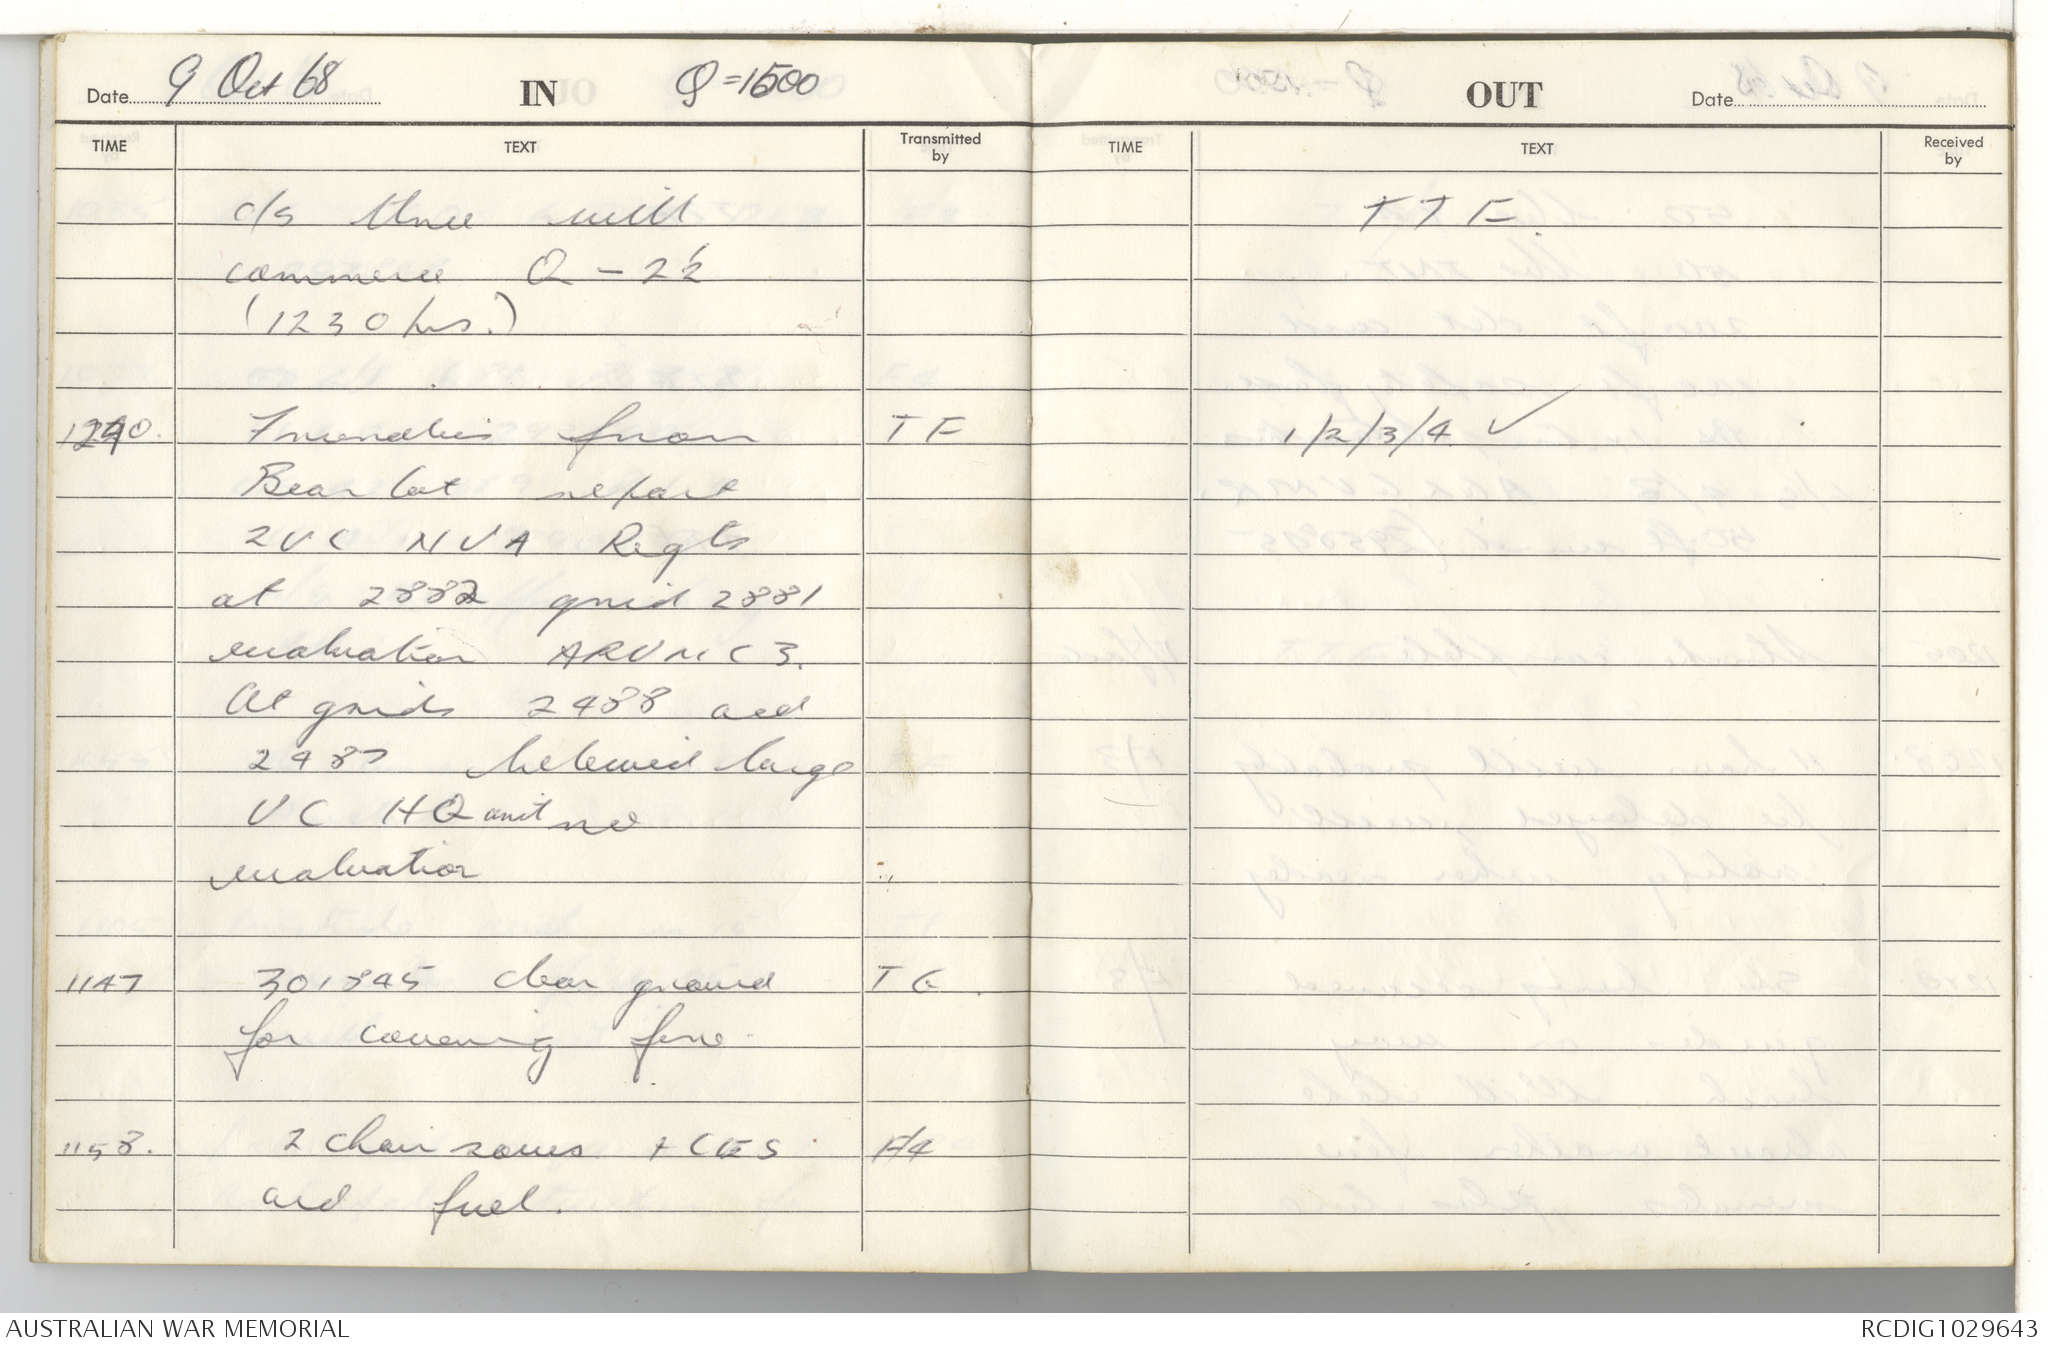 Date 9 Oct 68 IN Q = 1500
TIME TEXT Transmitted by
c/s three will
commence Q - 2½
(1230 hrs.)
Friendlies from TF
Bear Cat report
2 VC NVA Regts
at 2882 grid 2881
evaluation ARVN C3.
At grids 2488 and
2487 believed large
VC HQ unit no
evaluation
1147 301845 clear ground TG
for covering fire
1158. 2 chain saws + CES F/4
and fuel.
OUT Date
TIME TEXT Received by
TTF
1/2/3/4 ✓
AUSTRALIAN WAR MEMORIAL
RCDIG1029643